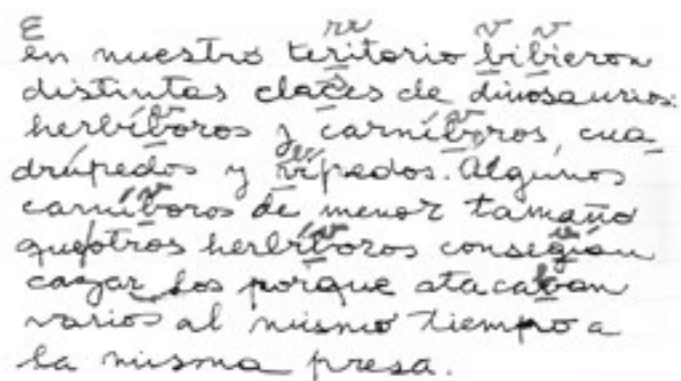 E rr v v
en nuestro teritorio bibieron
s
distintas claces de dinosaurios:
v v
herbíboros y carníboros, cua_
b
drúpedos y vípedos. Algunos
v
carníboros de menor tamaño
v u
que otros herbíboros consegían
cazar los porque atacavan
varios al mismo tiempo a
la misma presa.